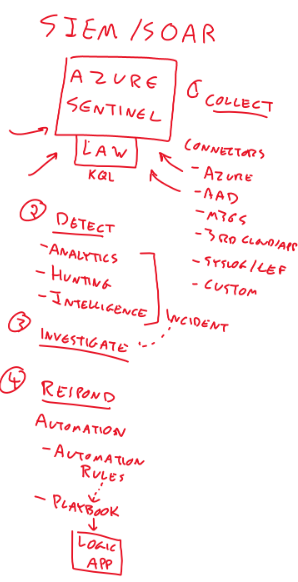 SIEM/SOAR
AZURE
SENTINEL
LAW
KQL
① COLLECT
CONNECTORS
- AZURE
- AAD
- M365
- 3RD CLOUD/APP
- SYSLOG/CEF
- CUSTOM
② DETECT
- ANALYTICS
- HUNTING
- INTELLIGENCE
INCIDENT
③ INVESTIGATE
④ RESPOND
AUTOMATION
- AUTOMATION
RULES
- PLAYBOOK
LOGIC
APP